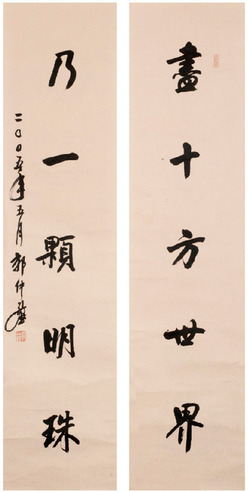 盡十方世界
乃一顆明珠
二〇〇五年五月郭仲選